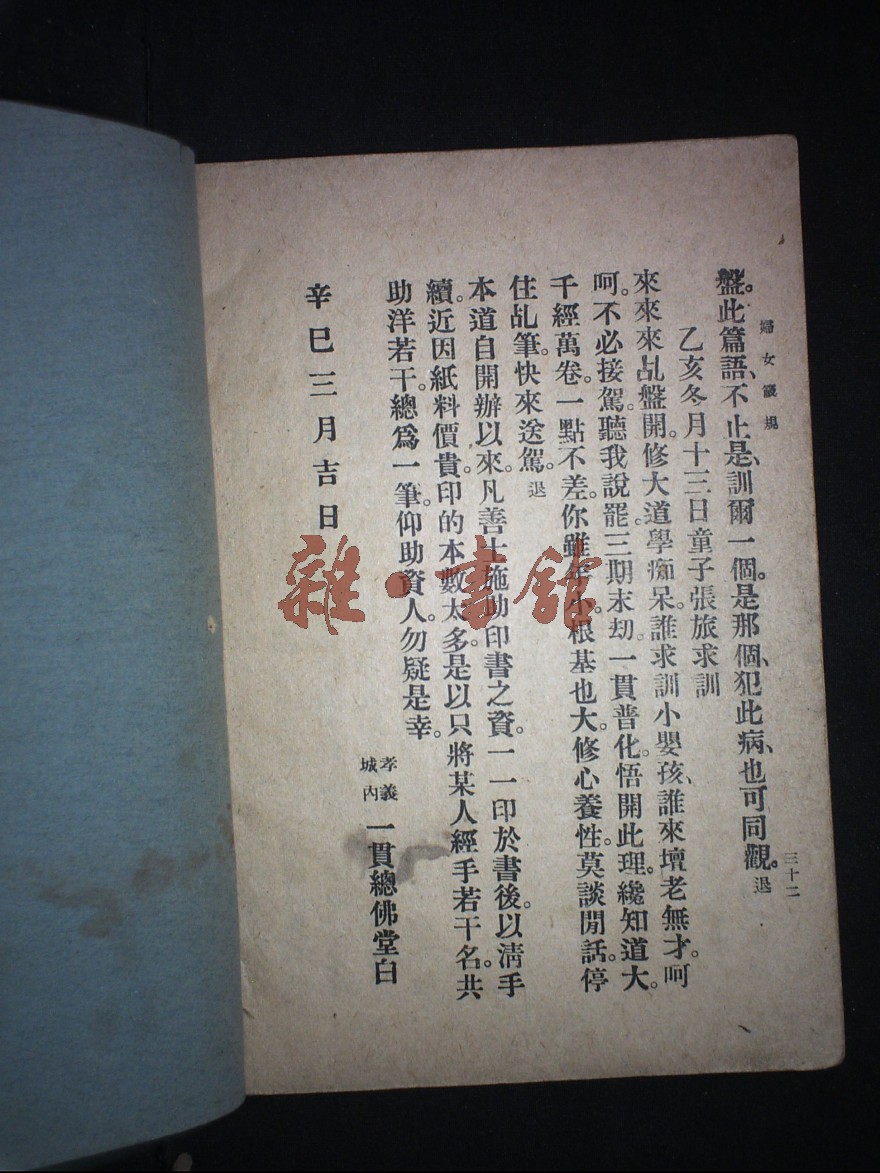 婦女箴規
三十二
盤。此篇語、不止是、訓爾一個。是那個、犯此病、也可同觀。退
乙亥冬月十三日童子張旅求訓
來來來乩盤開修大道學痴呆。誰求訓小嬰孩、誰來壇老無才。呵
呵。不必接駕聽我說罷三期末刧。一貫普化悟開此理。纔知道大。
千經萬卷。一點不差。你雖年小。根基也大。修心養性。莫談閒話。停
住乩筆。快來送駕。退
本道自開辦以來。凡善士施助印書之資。一一印於書後。以清手
續。近因紙料價貴印的本數太多。是以只將某人經手若干名。共
助洋若干。總爲一筆。仰助資人。勿疑是幸。
孝義城內 一貫總佛堂白
辛巳三月吉日
雜·書館